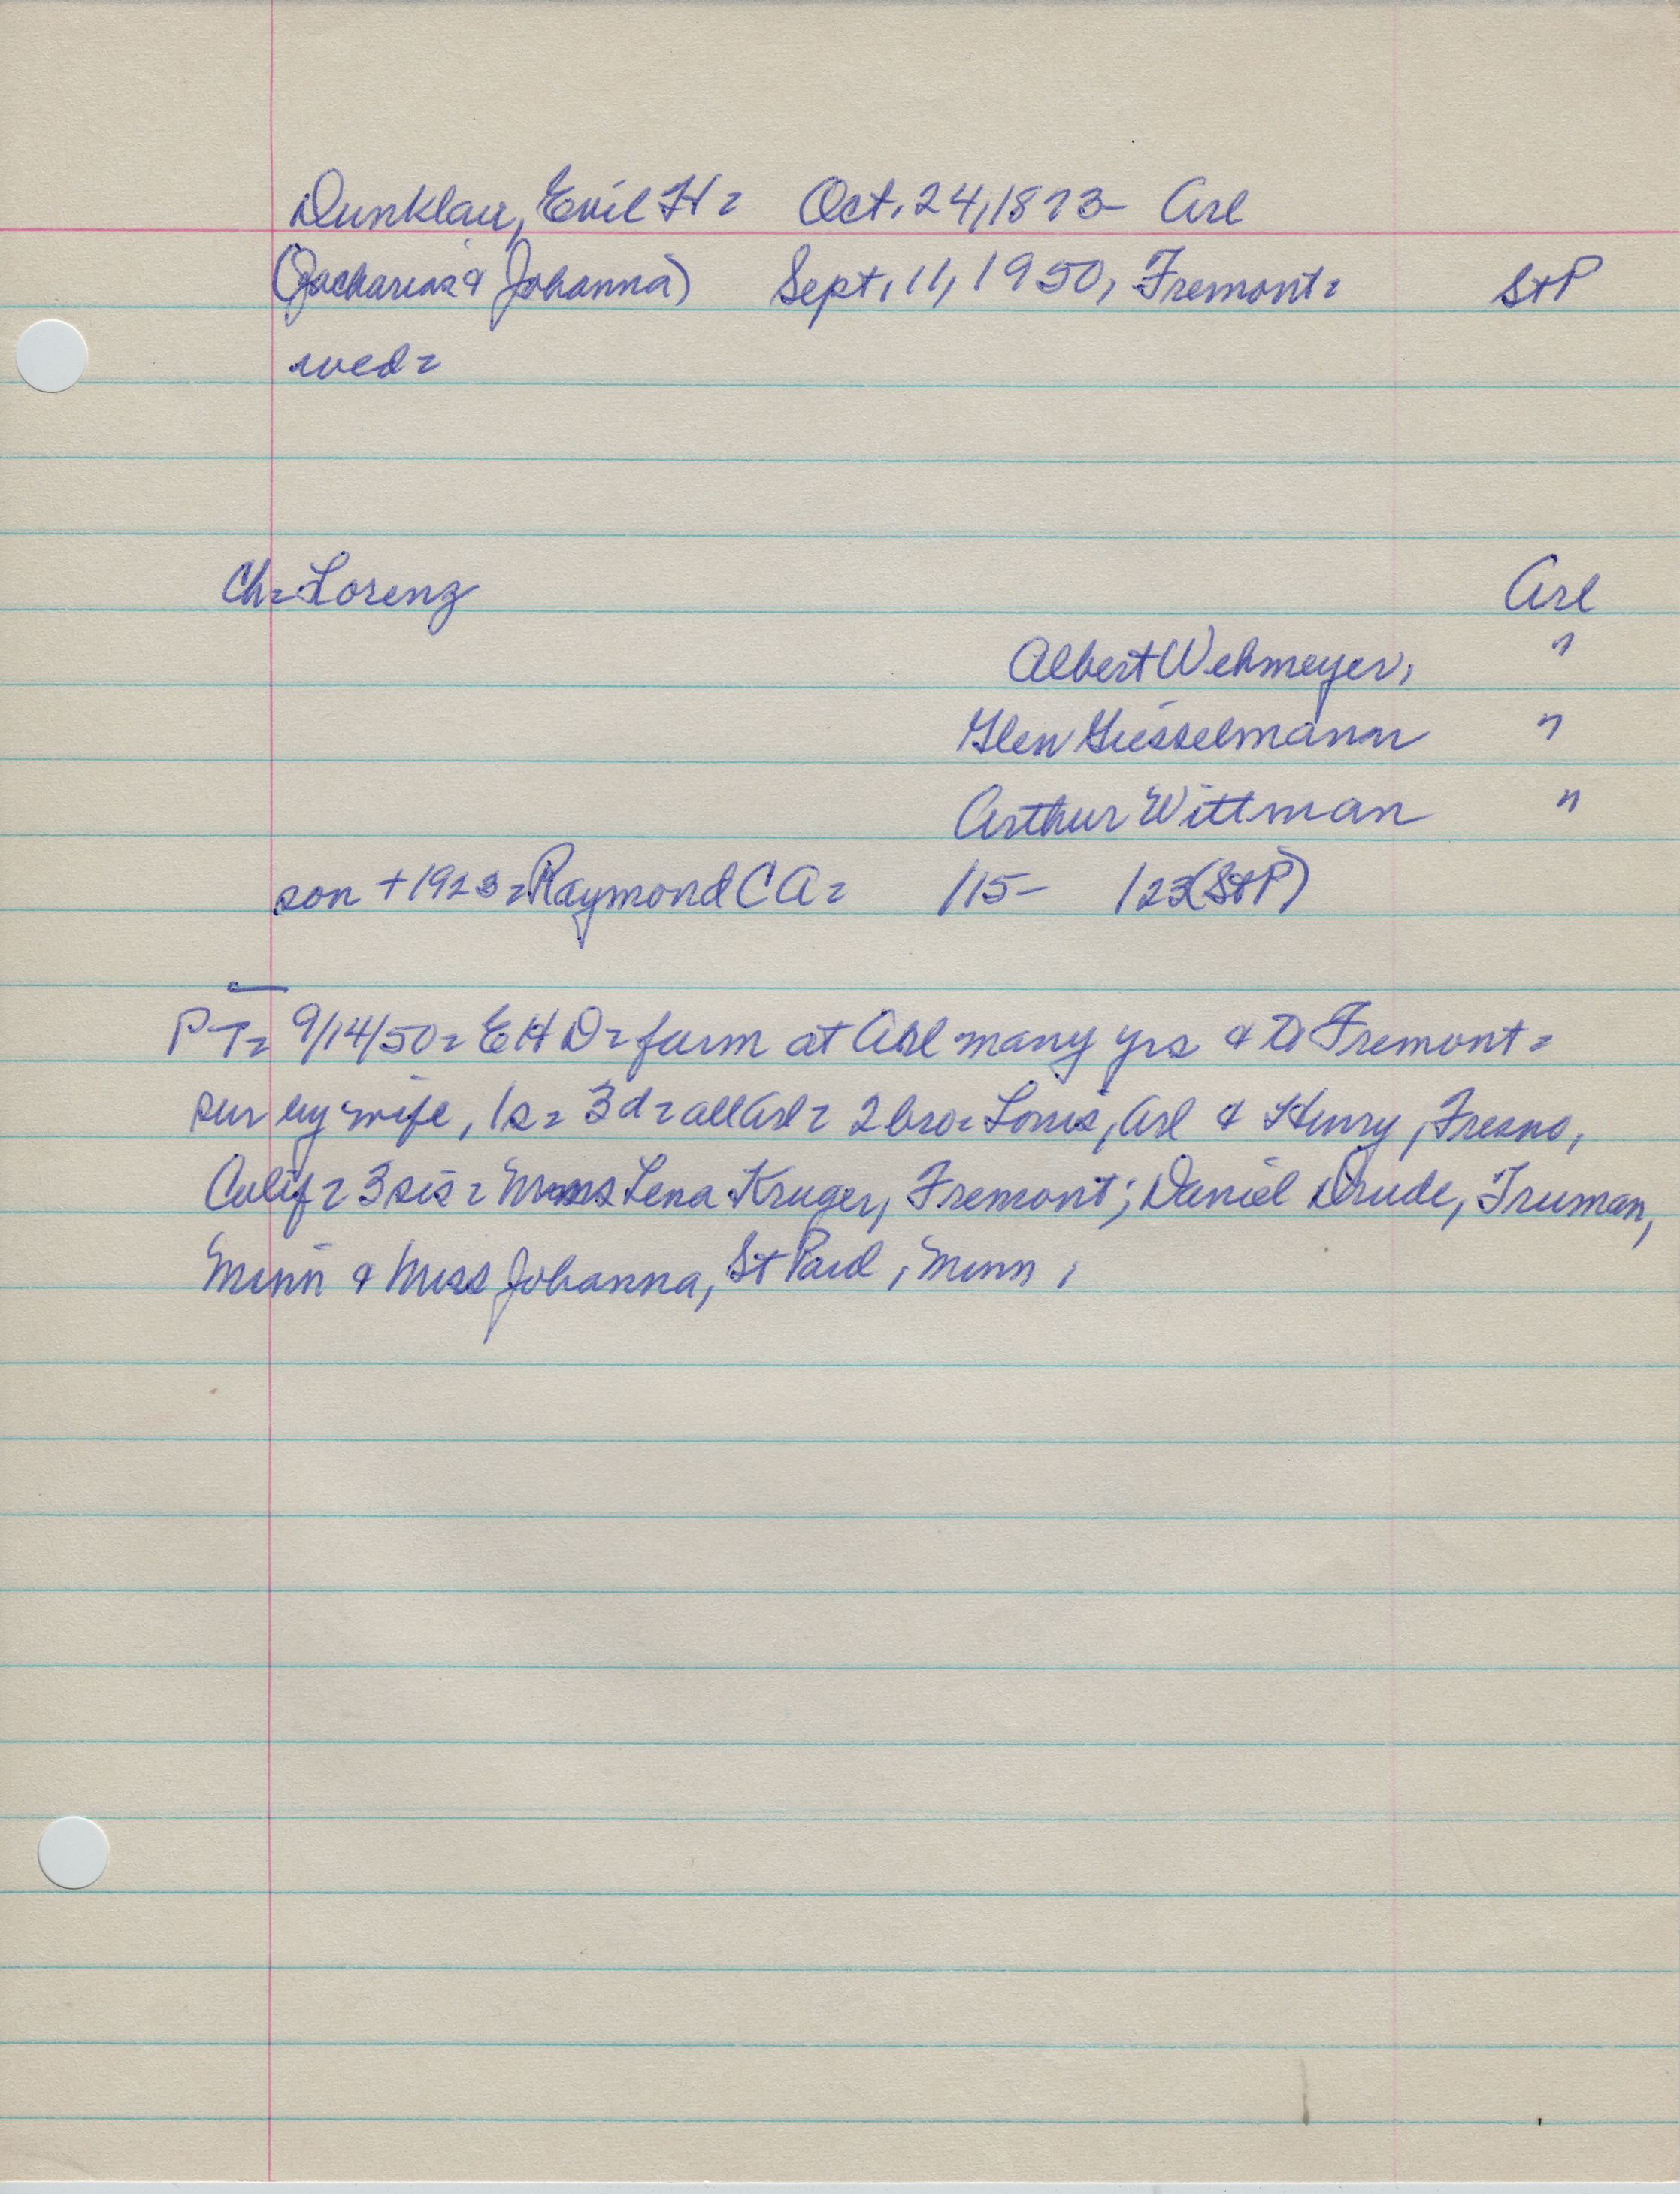 Dunklau, Emil H = Oct. 24, 1873- Arl
(Zacharias & Johanna) Sept. 11, 1950, Fremont = St P
wed =
Ch = Lorenz Arl
Albert Wehmeyer, "
Glen Giesselmann "
Arthur Wittman "
son + 1923 = Raymond C A = /15- /23 (St P)
PT = 9/14/50 = E H D = farm at Arl many yrs & to Fremont =
sur by wife, 1s = 3d = all Arl = 2 bro = Louis, Arl & Henry, Fresno,
Calif = 3 sis = Mmes Lena Kruger, Fremont; Daniel Drude, Truman,
Minn & Miss Johanna, St Paul, Minn,